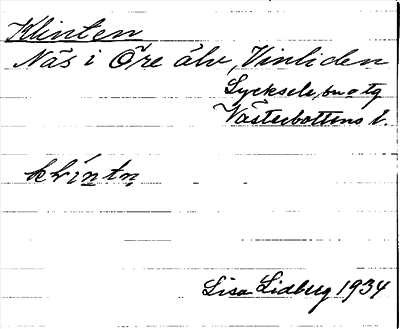 Klinten
Näs i Öre älv, Vinliden
Lycksele, bm o tg
Västerbottens l.
Lisa Lidberg 1934